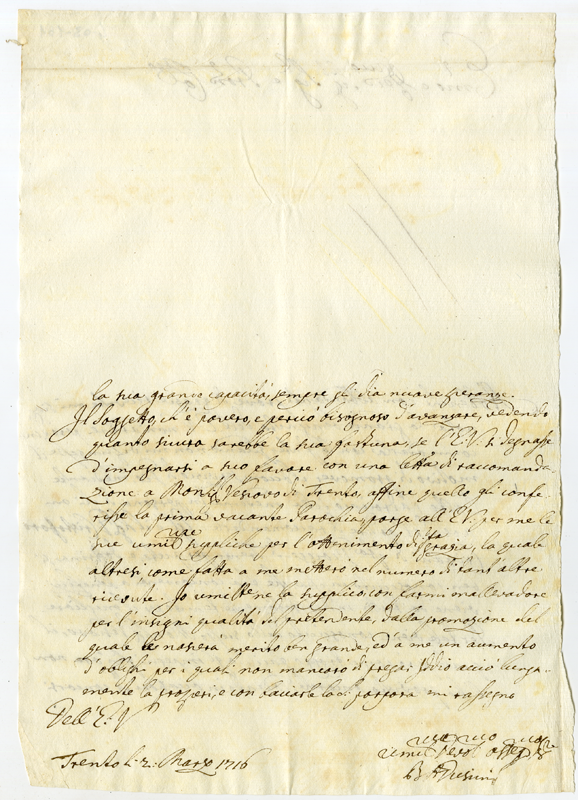 la sua grande capacità, sempre gli dia nuove speranze.
Il Soggetto, ch'è povero, e perciò bisognoso d'avanzare, vedendo
quanto sicura sarebbe la sua fortuna, se l'E.V. si degnasse
d'impegnarsi a suo favore con una lettera di raccomanda
zione a Monsr Vescovo di Trento, affine quello gli confe
risse la prima vacante Parochia, porge all'E.V. per me le
sue umilme suppliche per l'ottenimento di sta grazia, la quale
altresì come fatta a me metterò nel numero di tant'altre
ricevute. Io umilmte ne la supplico con farmi mallevadore
per l'insigni qualità del pretendente, dalla promozione del
quale le nascerà merito ben grande, ed a me un aumento
d'oblighi per i quali non mancarò di pregar Iddio acciò lunga
mente la prosperi, e con baciarle la S. porpora mi rassegno
Dell'E.V.
Trento li 2. Marzo 1716
umo devmo ossegmo